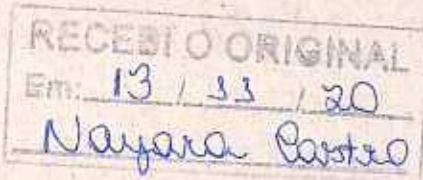 RECEBI O ORIGINAL
Em: 13 / 11 / 20
Nayara Castro